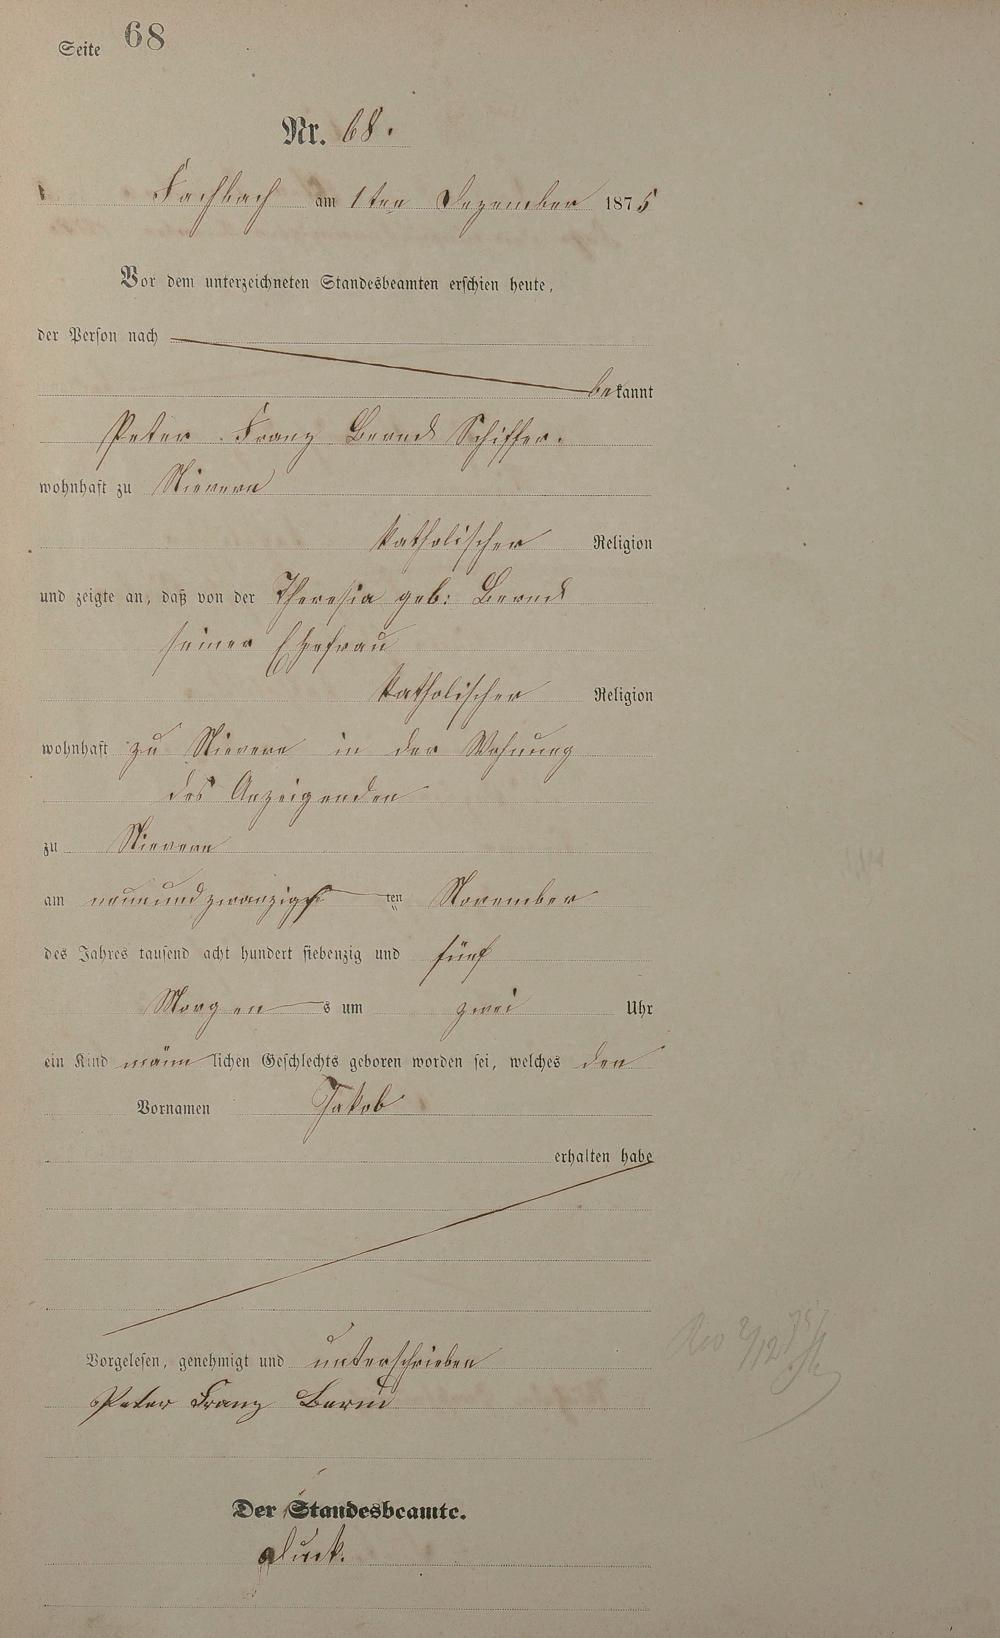 Seite 68
Nr. 68.
Fachbach am 1ten Dezember 1875
Vor dem unterzeichneten Standesbeamten erschien heute,
der Person nach
bekannt
Peter Franz Bernd Schiffer.
wohnhaft zu Nievern
katholischer Religion
und zeigte an, daß von der Theresia geb: Bernd
seiner Ehefrau
katholischer Religion
wohnhaft zu Nievern in der Wohnung
des Anzeigenden
zu Nievern
am neunundzwanzigsten November
des Jahres tausend acht hundert siebenzig und fünf
Morgens um zwei Uhr
ein Kind männlichen Geschlechts geboren worden sei, welches den
Vornamen Jakob
erhalten habe
Vorgelesen, genehmigt und unterschrieben
Peter Franz Bernd
Der Standesbeamte.